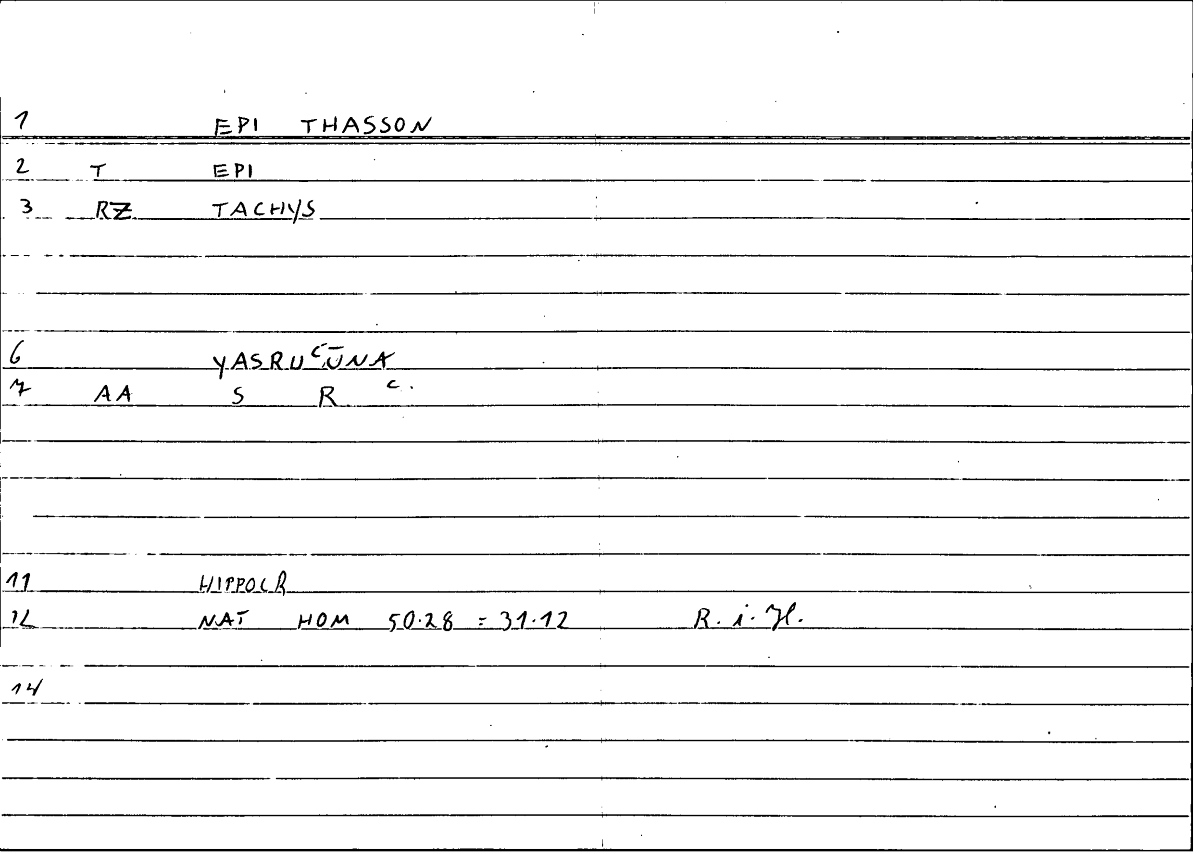 1 EPI THASSON
2 T EPI
3 RZ TACHYS
6 YASRUʿŪNA
7 AA S R ʿ.
11 HIPPOCR
12 NAT HOM 50.28 = 31.12 R. i. H.
14